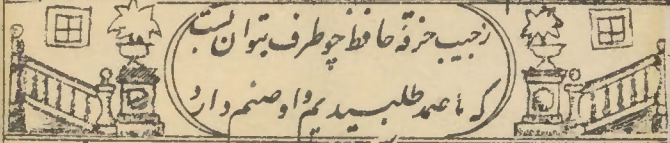 زجیب خرقه حافظ چو طرف بتوان بست
که ما صمد طلبیدیم و او صنم دارد